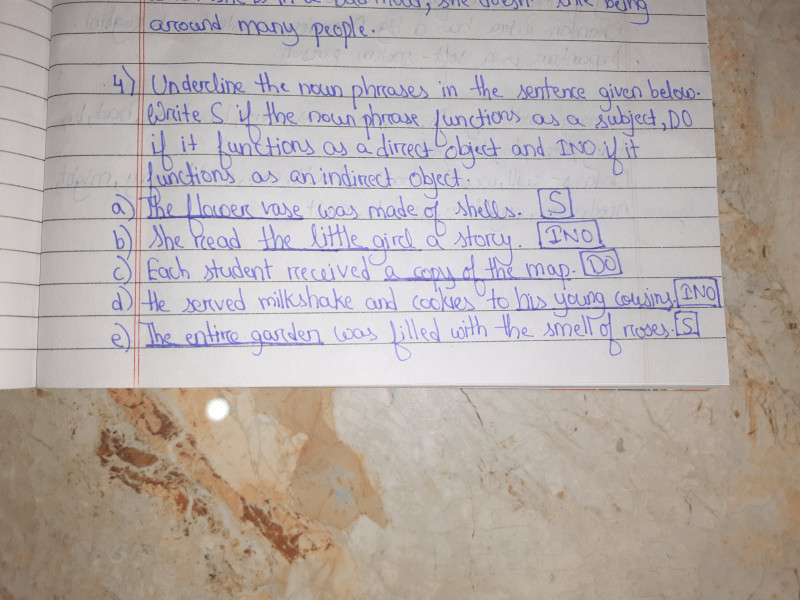 being
around many people.
4) Underline the noun phrases in the sentence given below.
Write S if the noun phrase functions as a subject, DO
if it functions as a direct object and INO if it
functions as an indirect object.
a) The flower vase was made of shells. S
b) She read the little girl a story. INO
c) Each student received a copy of the map. DO
d) He served milkshake and cookies to his young cousins. INO
e) The entire garden was filled with the smell of roses. S